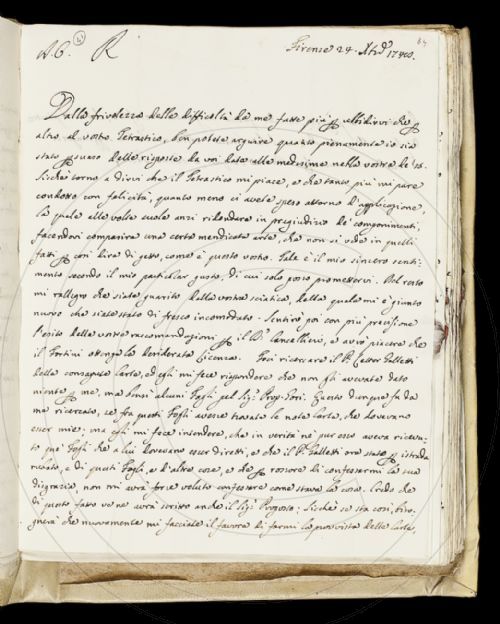 A. C. R
Firenze 24 Xbre 1740.
Dalla frivolezza delle difficoltà da me fatte più p ubbidirvi che p
altro al vostro Tetrastico, ben potete arguire quanto pienamente io sia
stato psuaso delle risposte da voi date alle medesime nella vostra de' 18.
Sicchè torno a dirvi che il Tetrastico mi piace, e che tanto più mi pare
condotto con felicità, quanto meno ci avete speso attorno d'applicazione,
la quale alle volte suole anzi ridondare in pregiudizio de' componimenti,
facendovi comparire una certa mendicata arte, che non si vede in quelli
fatti p così dire di getto, come è questo vostro. Tale è il mio sincero senti-
mento secondo il mio particular gusto, di cui solo posso promettervi. Del resto
mi rallegro che siate guarito della vostra sciatica, della quale mi è giunto
nuovo che siate stato di fresco incomodato. Sentirò poi con più precisione
l'esito delle vostre raccomandazioni p il Cancelliero, e avrò piacere che
il Fortini ottenga la desiderata licenza. Feci ricercare il P. Galletti
delle consapute Carte, ed egli mi fece rispondere che non gli avevate dato
niente p me, ma bensì alcuni fogli pel Sig. Prop. Gori. Questo dunque fu da
me ricercato, se fra questi fogli avesse trovate le note Carte, che dovevano
esser mie: ma egli mi fece intendere, che in verità ne pur esso aveva ricevu-
to que' fogli che a lui dovevano esser diretti, e che il P. Galletti era stato p istrada
rubato, e di questi fogli, e d'altre cose, e che p rossore di confessarmi la sua
disgrazia non mi avrà forse voluto confessare come stava la cosa. Credo che
di questo fatto ve ne avrà scritto anche il Sig. Proposto: Sicchè se sta così, biso-
gnerà che nuovamente mi facciate il favore di farmi la provvista delle Carte,